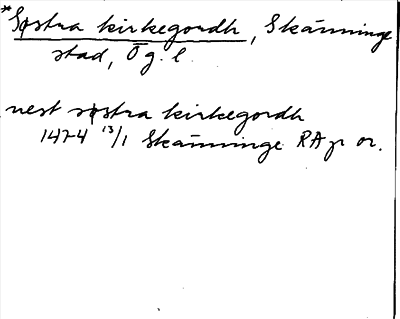 *Søstra kirkegordh, Skänninge
stad, Ög. l.
nest søstra kirkegordh
1424 13/1 Skänninge RAp or.